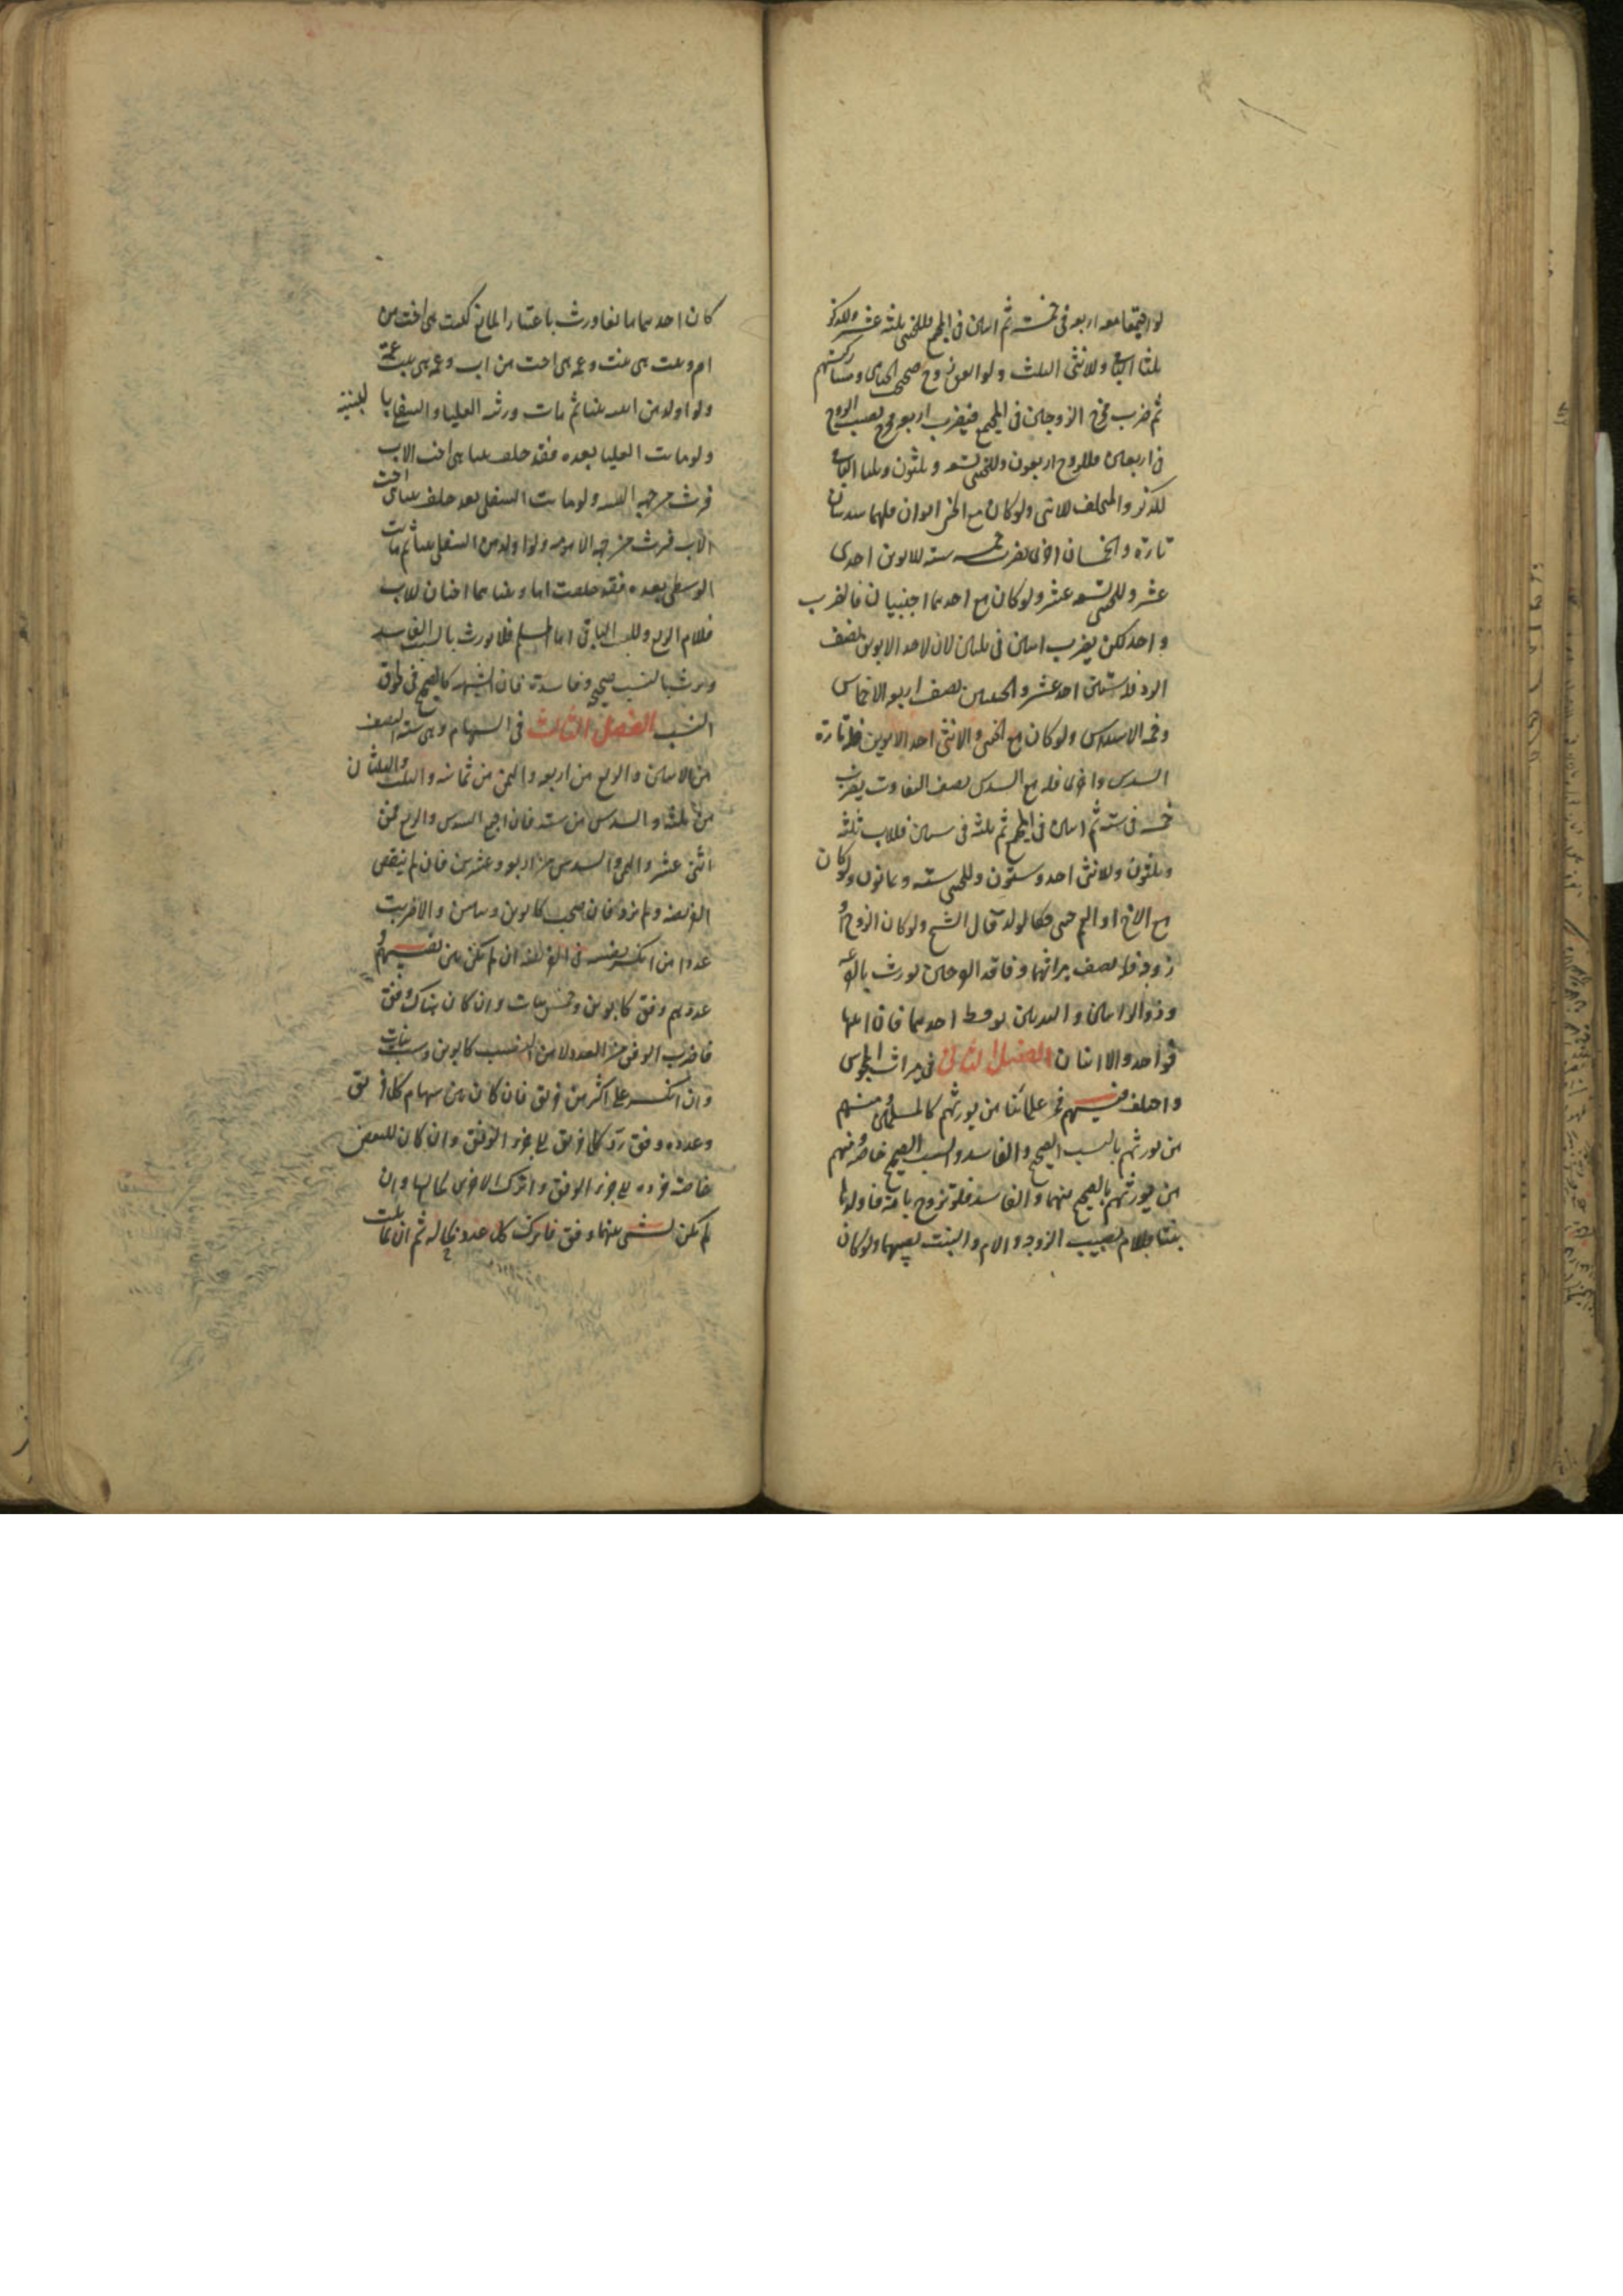 لو اجتمعا معه اربعه فى خمسة ثم اثنين فى المجتمع للخنثى ثلثه عشر وللذكر
ثلثا الباقى وللانثى الثلث ولو اتفق زوج صححت الخناثى ومشاركيهم
ثم ضرب مخرج الزوجين فى المجتمع فيضرب اربعه مخرج نصيب الزوج
فى اربعين فللزوج اربعون وللخنثى تسعه وثلثون وثلثا الباقى
للذكر والمتخلف للانثى ولو كان مع الخنثى ابوان فلهما سدسان
تارة والخمسان اخرى يضرب خمسه سته للابوين احدى
عشر وللخنثى تسعه عشر ولو كان مع احدهما خنثيان فالضرب
واحد لكن يضرب اثنين فى ثلثين لان لاحد الابوين نصف
الرد فلاستين احد عشر والخنثيين نصف اربعه الاخماس
وخمسه الاسداس ولو كان مع الخنثى والانثى احد الابوين فله تارة
السدس واخرى فله مع السدس نصف التفاوت يضرب
خمسه فى سته ثم اثنين فى المجتمع ثم ثلثه فى ستين فللاب ثلثه
وثلثون وللانثى احد وستون وللخنثى سته وثمانون ولو كان
مع الاخ او العم خنثى فكالولد قال الشيخ ولو كان الزوج او
زوجه فله نصف ميراثهما وفاقد الفرجين يورث بالقرعه
وذو الراسين والبدنين يوقظ احدهما فان انتبها
فواحد والا اثنان الفصل الثانى فى ميراث المجوس
واختلف فيهم فمن علمائنا من يورثهم كالمسلمين ومنهم
من يورثهم بالنسب الصحيح والفاسد والسبب الصحيح خاصه ومنهم
من يورثهم بالصحيح منهما والفاسد فلو تزوج بامه فاولدها
بنتا فللام نصيب الزوجه والام والبنت نصيبها ولو كان
كان احدهما مانعا ورث باعتبار المانع كبنت هى اخت من
ام وبنت هى بنت وعمة هى اخت من اب وعمه هى بنت عمة
ولو اولد من ابنته بنتا ثم مات ورثه العليا والسفلى بالبنتيه
ولو ماتت العليا بعده فقد خلفت بنتا هى اخت الاب
فترث من جهه البنت ولو ماتت السفلى بعد خلفت بنتا هى اخت
الاب فترث من جهه الامومه ولو اولد من السفلى بنتا ثم ماتت
الوسطى بعده فقد خلفت اما وبنتا هما اختان للاب
فللام الربع وللبنت الباقى اما المسلم فلا يورث بالسبب الفاسد
ويرث بالنسب صحيحه وفاسده فان الشبهه كالصحيح فى لحوق
النسب الفصل الثالث فى السهام وهى سته النصف
من الاثنين والربع من اربعه والثمن من ثمانيه والثلث والثلثان
من ثلثه والسدس من سته فان اجتمع السدس والربع فمن
اثنى عشر والثمن والسدس من اربعه وعشرين فان لم ينقص
الفريضه ولم تزد فان صحت كابوين وبنتين والا ضربت
عدد من انكسر نصيبه فى الفريضه ان لم يكن بين نصيبهم و
عددهم وفق كابوين وخمس بنات وان كان هناك وفق
فاضرب الوفق من العدد لا من النصيب كابوين وست بنات
وان انكسر على اكثر من فريق فان كان بين سهام كل فريق
وعدده وفق رد كل فريق الى جزء الوفق وان كان للبعض
خاصة فرده الى جزء الوفق واترك الاخرى بحالها وان
لم يكن لشىء منهما وفق فاترك كل عدد بحاله ثم ان تماثلت